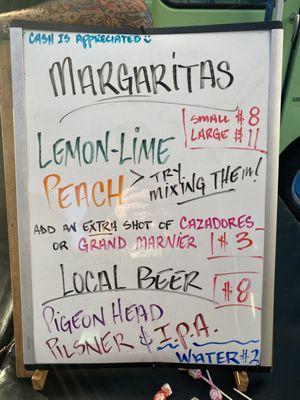 CASH IS APPRECIATED
MARGARITAS
SMALL $8
LARGE $11
LEMON-LIME
PEACH > TRY
MIXING THEM!
ADD AN EXTRA SHOT OF CAZADORES
OR GRAND MARNIER $3
LOCAL BEER $8
PIGEON HEAD
PILSNER & I.P.A.
WATER $2